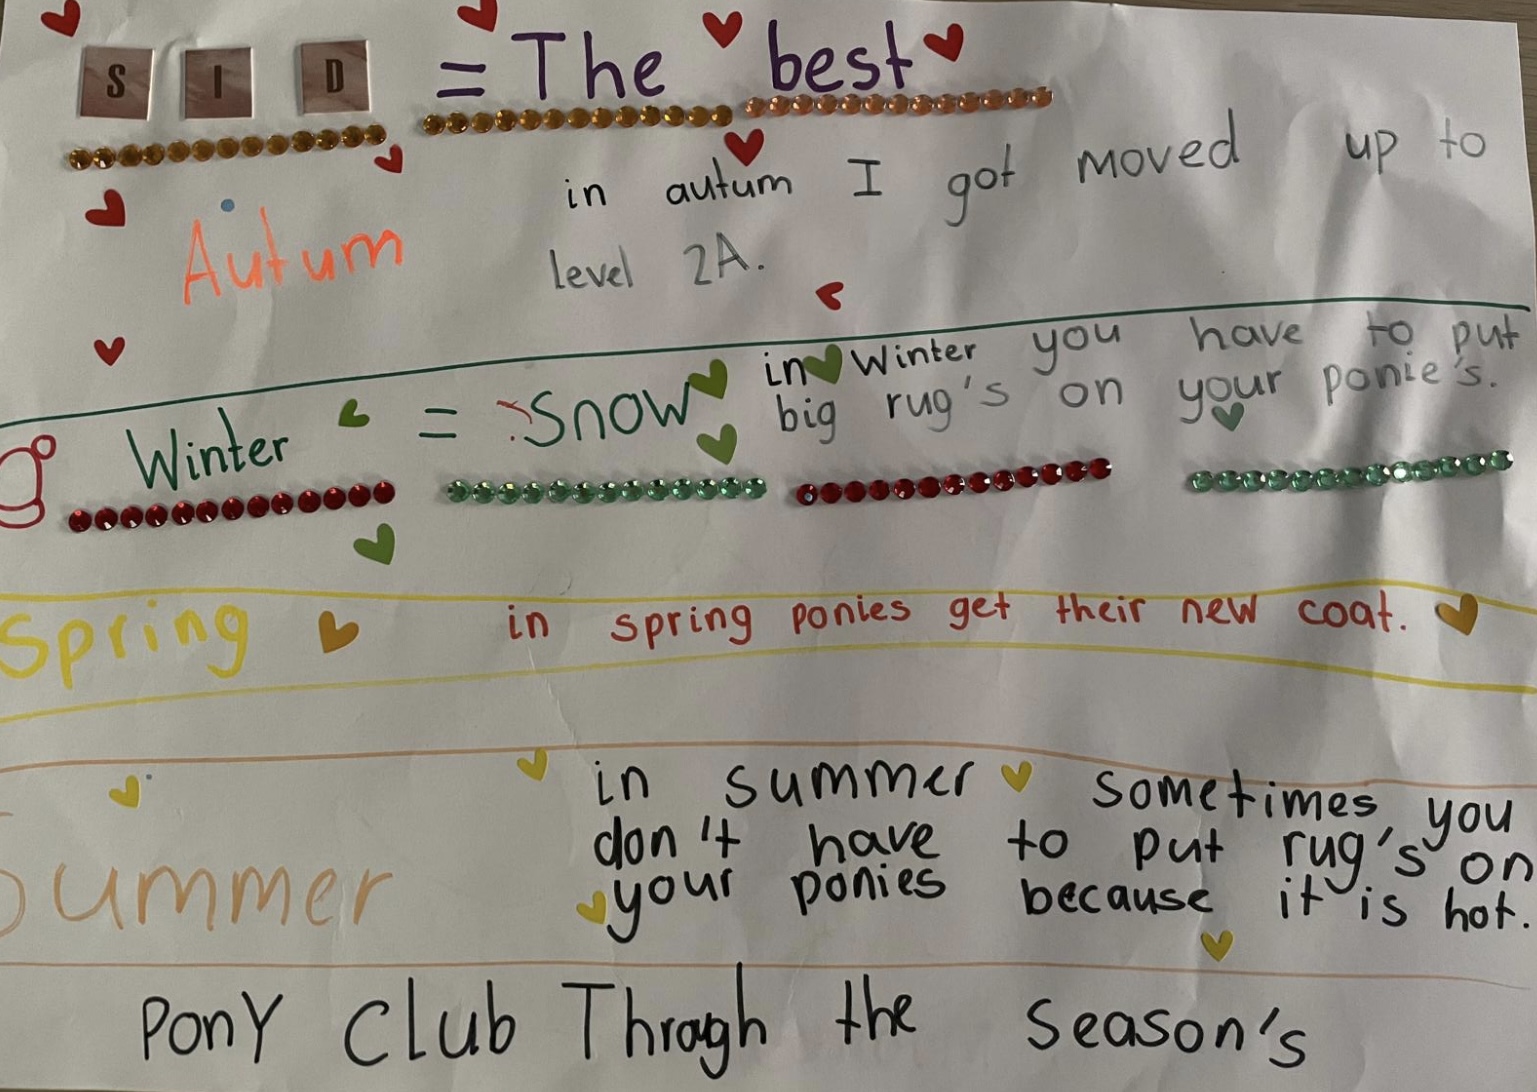 SID = The best
Autum
in autum I got moved up to
level 2A.
Winter = Snow
in Winter you have to put
big rug's on your ponie's.
Spring
in spring ponies get their new coat.
Summer
in summer sometimes you
don't have to put rug's on
your ponies because it is hot.
PonY Club Thragh the Season's